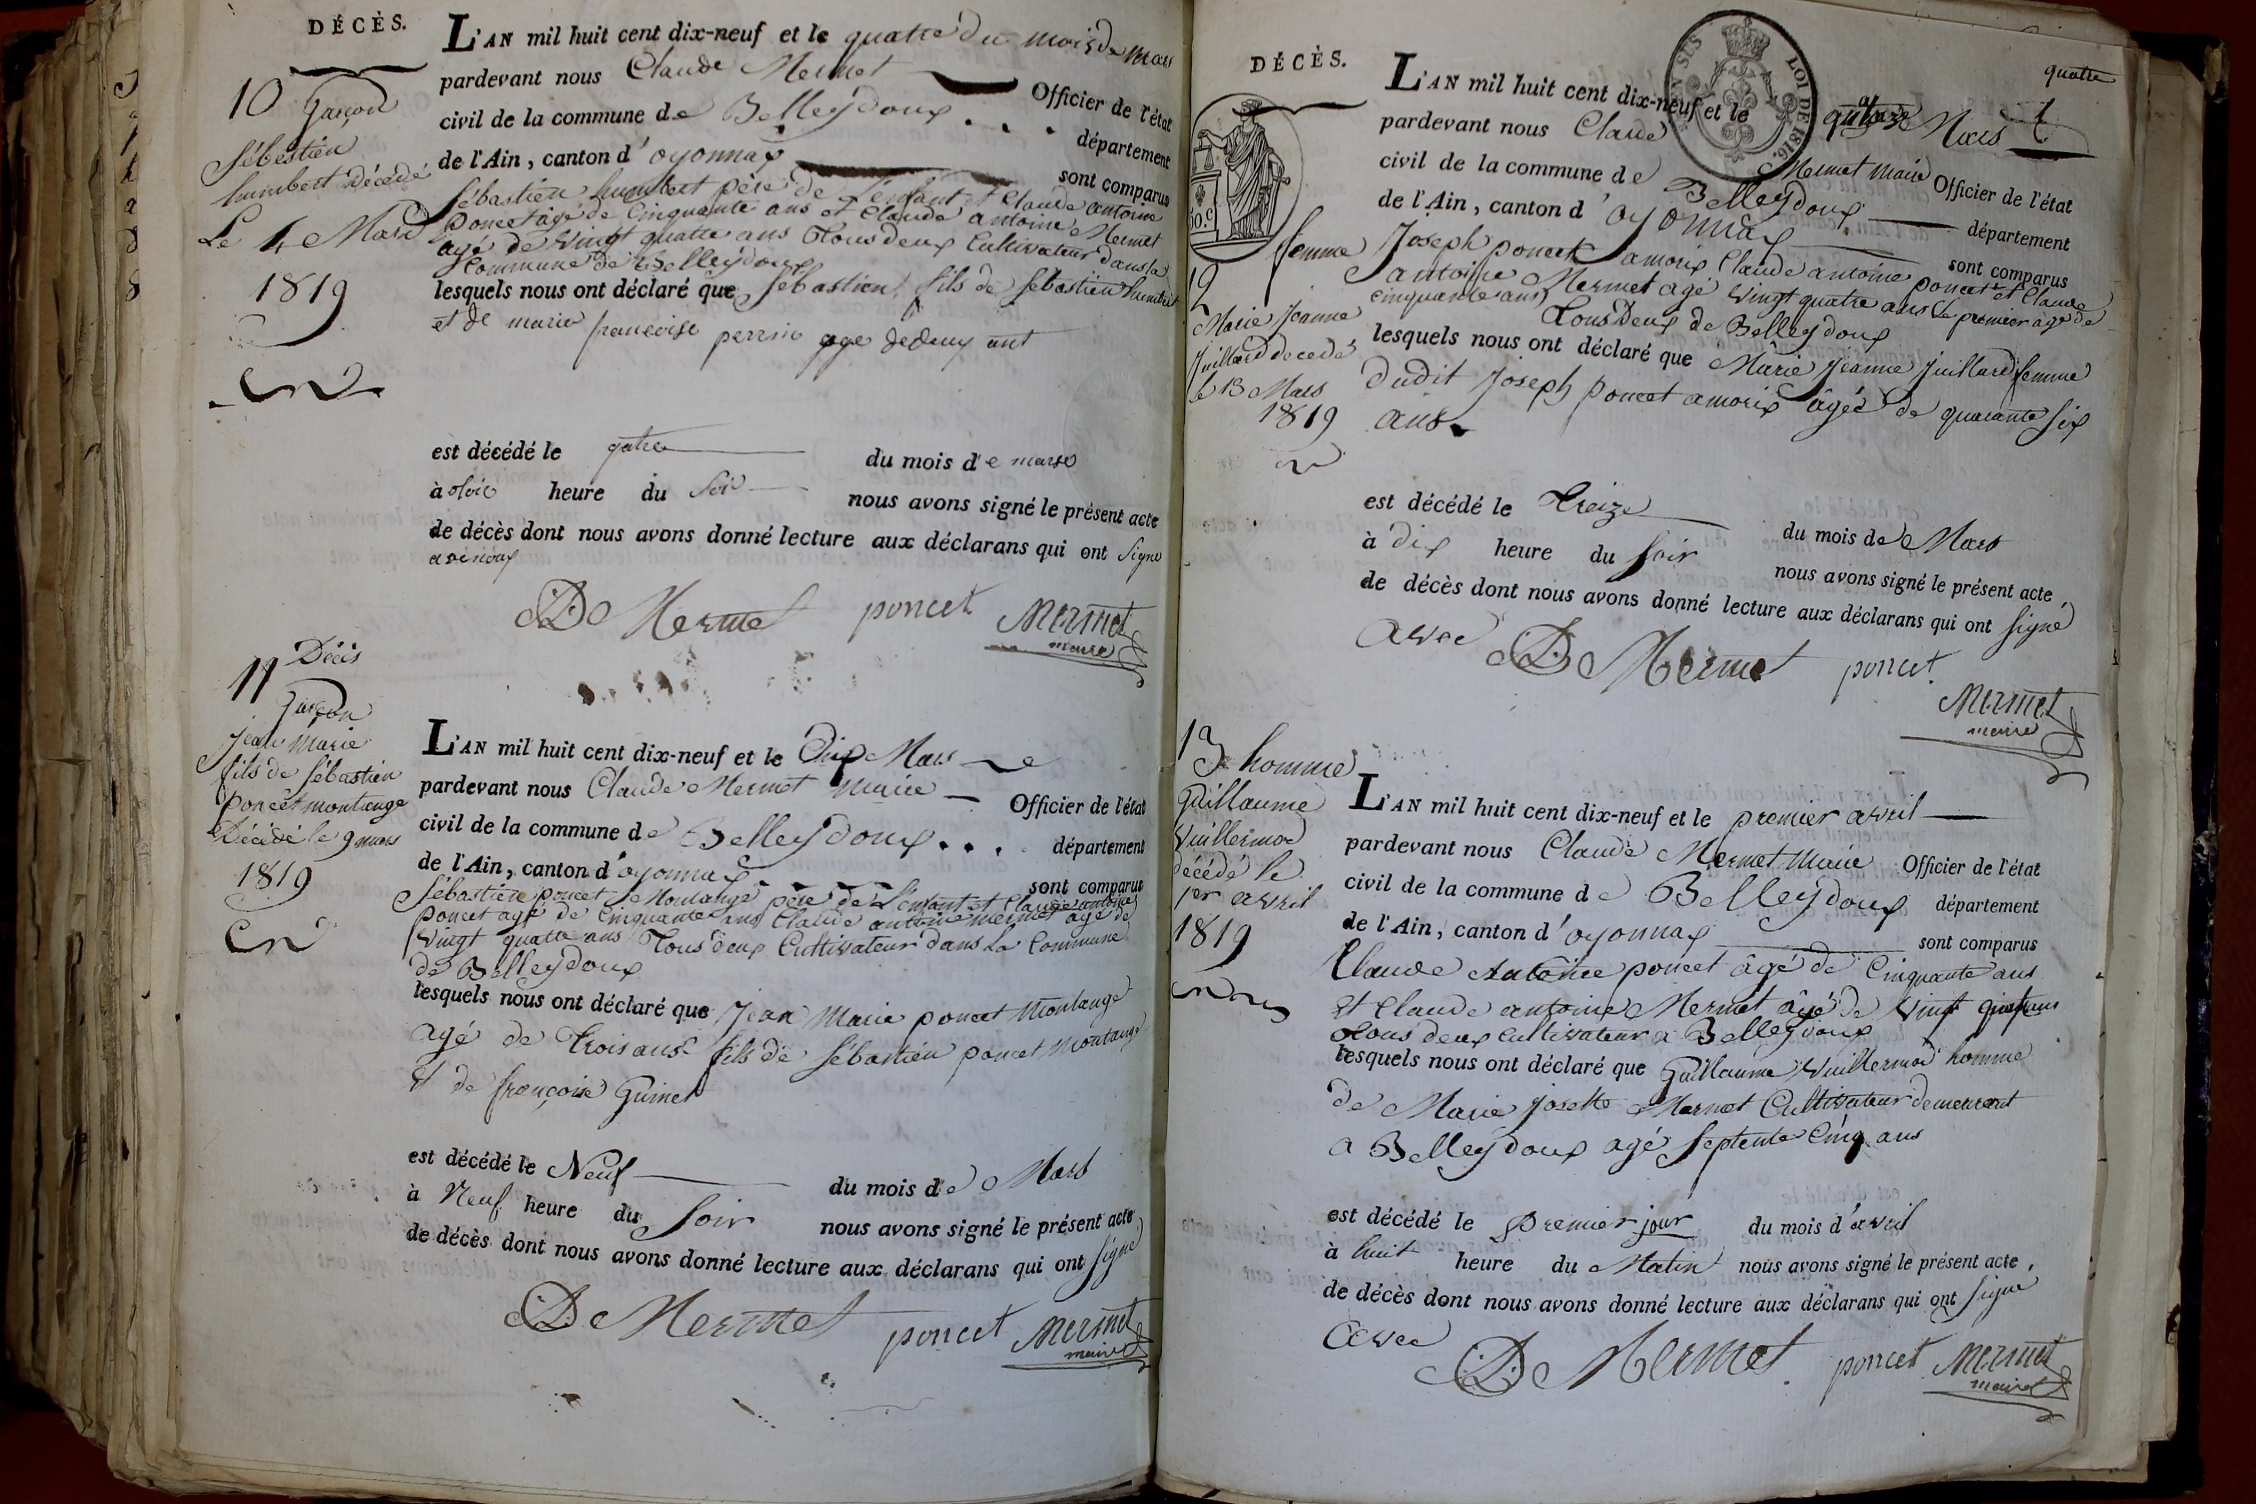 DÉCÈS.
10 Garçon
Sébestien
humbert décédé
Le 4 Mars
1819
L'AN mil huit cent dix-neuf et le quatre du mois de mars
pardevant nous Claude Mermet Officier de l'état
civil de la commune de Belleydoux département
de l'Ain, canton d'oyonnax sont comparus
Sébastien humbert père de l'enfant et Claude antoine
poncet âgé de Cinquante ans et Claude antoine Mermet
agé de vingt quatre ans Tous deux Cultivateur dans la
Commune de Belleydoux
lesquels nous ont déclaré que Sébastien, fils de Sébastien humbert
et de marie françoise perrin age dedeux ant
est décédé le qatre du mois de marse
à heure du Soir nous avons signé le présent acte
de décès dont nous avons donné lecture aux déclarans qui ont Signe
avenoux
De Mermet poncet Mermet
maire
Décis
11
Garçon
jean Marie
fils de Sébastien
poncet montange
Décédé le 9 mars
1819
L'AN mil huit cent dix-neuf et le Dix Mars
pardevant nous Claude Mermet Maire Officier de l'état
civil de la commune de Belleydoux département
de l'Ain, canton d'oyonnax sont comparus
Sébastien poncet Montange père de L'enfant et Claude antoine
poncet agé de Cinquante ans Claude antoine mermet agé de
Vingt quatre ans Tous deux Cultivateur dans La Commune
de Belleydoux
lesquels nous ont déclaré que Jean Marie poncet Montange
agé de Trois ans fils de Sébastien poncet Montange
et de françoise Guinet
est décédé le Neuf du mois de Mars
à Neuf heure du Soir nous avons signé le présent acte
de décès dont nous avons donné lecture aux déclarans qui ont Signe
De Mermet poncet Mermet
maire
quatre
DÉCÈS.
LOI DE 1816.
10.c
femme
12
Marie Jeanne
Juillard decede
le 13 Mars
1819
L'AN mil huit cent dix-neuf et le Mars
pardevant nous Claude Mermet Maire Officier de l'état
civil de la commune de Belleydoux département
de l'Ain, canton d'oyonnax sont comparus
Joseph poncet amorix Claude antoine poncet et Claude
antoine Mermet agé Vingt quatre ans Le premier âgé de
cinquante ans Tous Deux de Belleydoux
lesquels nous ont déclaré que Marie Jeanne Juillard femme
dudit Joseph poncet amorix âgée de quarante Six
ans
est décédé le Treize du mois de Mars
à dix heure du Soir nous avons signé le présent acte,
de décès dont nous avons donné lecture aux déclarans qui ont signé
avec De Mermet poncet
Mermet
maire
13 homme
Guillaume
Vuillermod
décédé le
1er avril
1819
L'AN mil huit cent dix-neuf et le premier avril
pardevant nous Claude Mermet Maire Officier de l'état
civil de la commune de Belleydoux département
de l'Ain, canton d'oyonnax sont comparus
Claude Antoine poncet âgé de Cinquante ans
et Claude antoine Mermet âgé de Vingt
Tous deux cultivateur a Belleydoux
lesquels nous ont déclaré que Guillaume Vuillermod homme
de Marie Josette Mermet Cultivateur demeurant
a Belleydoux agé Septente Cinq ans
est décédé le premier jour du mois d'avril
à huit heure du Matin nous avons signé le présent acte,
de décès dont nous avons donné lecture aux déclarans qui ont signe
avec
De Mermet poncet Mermet
maire